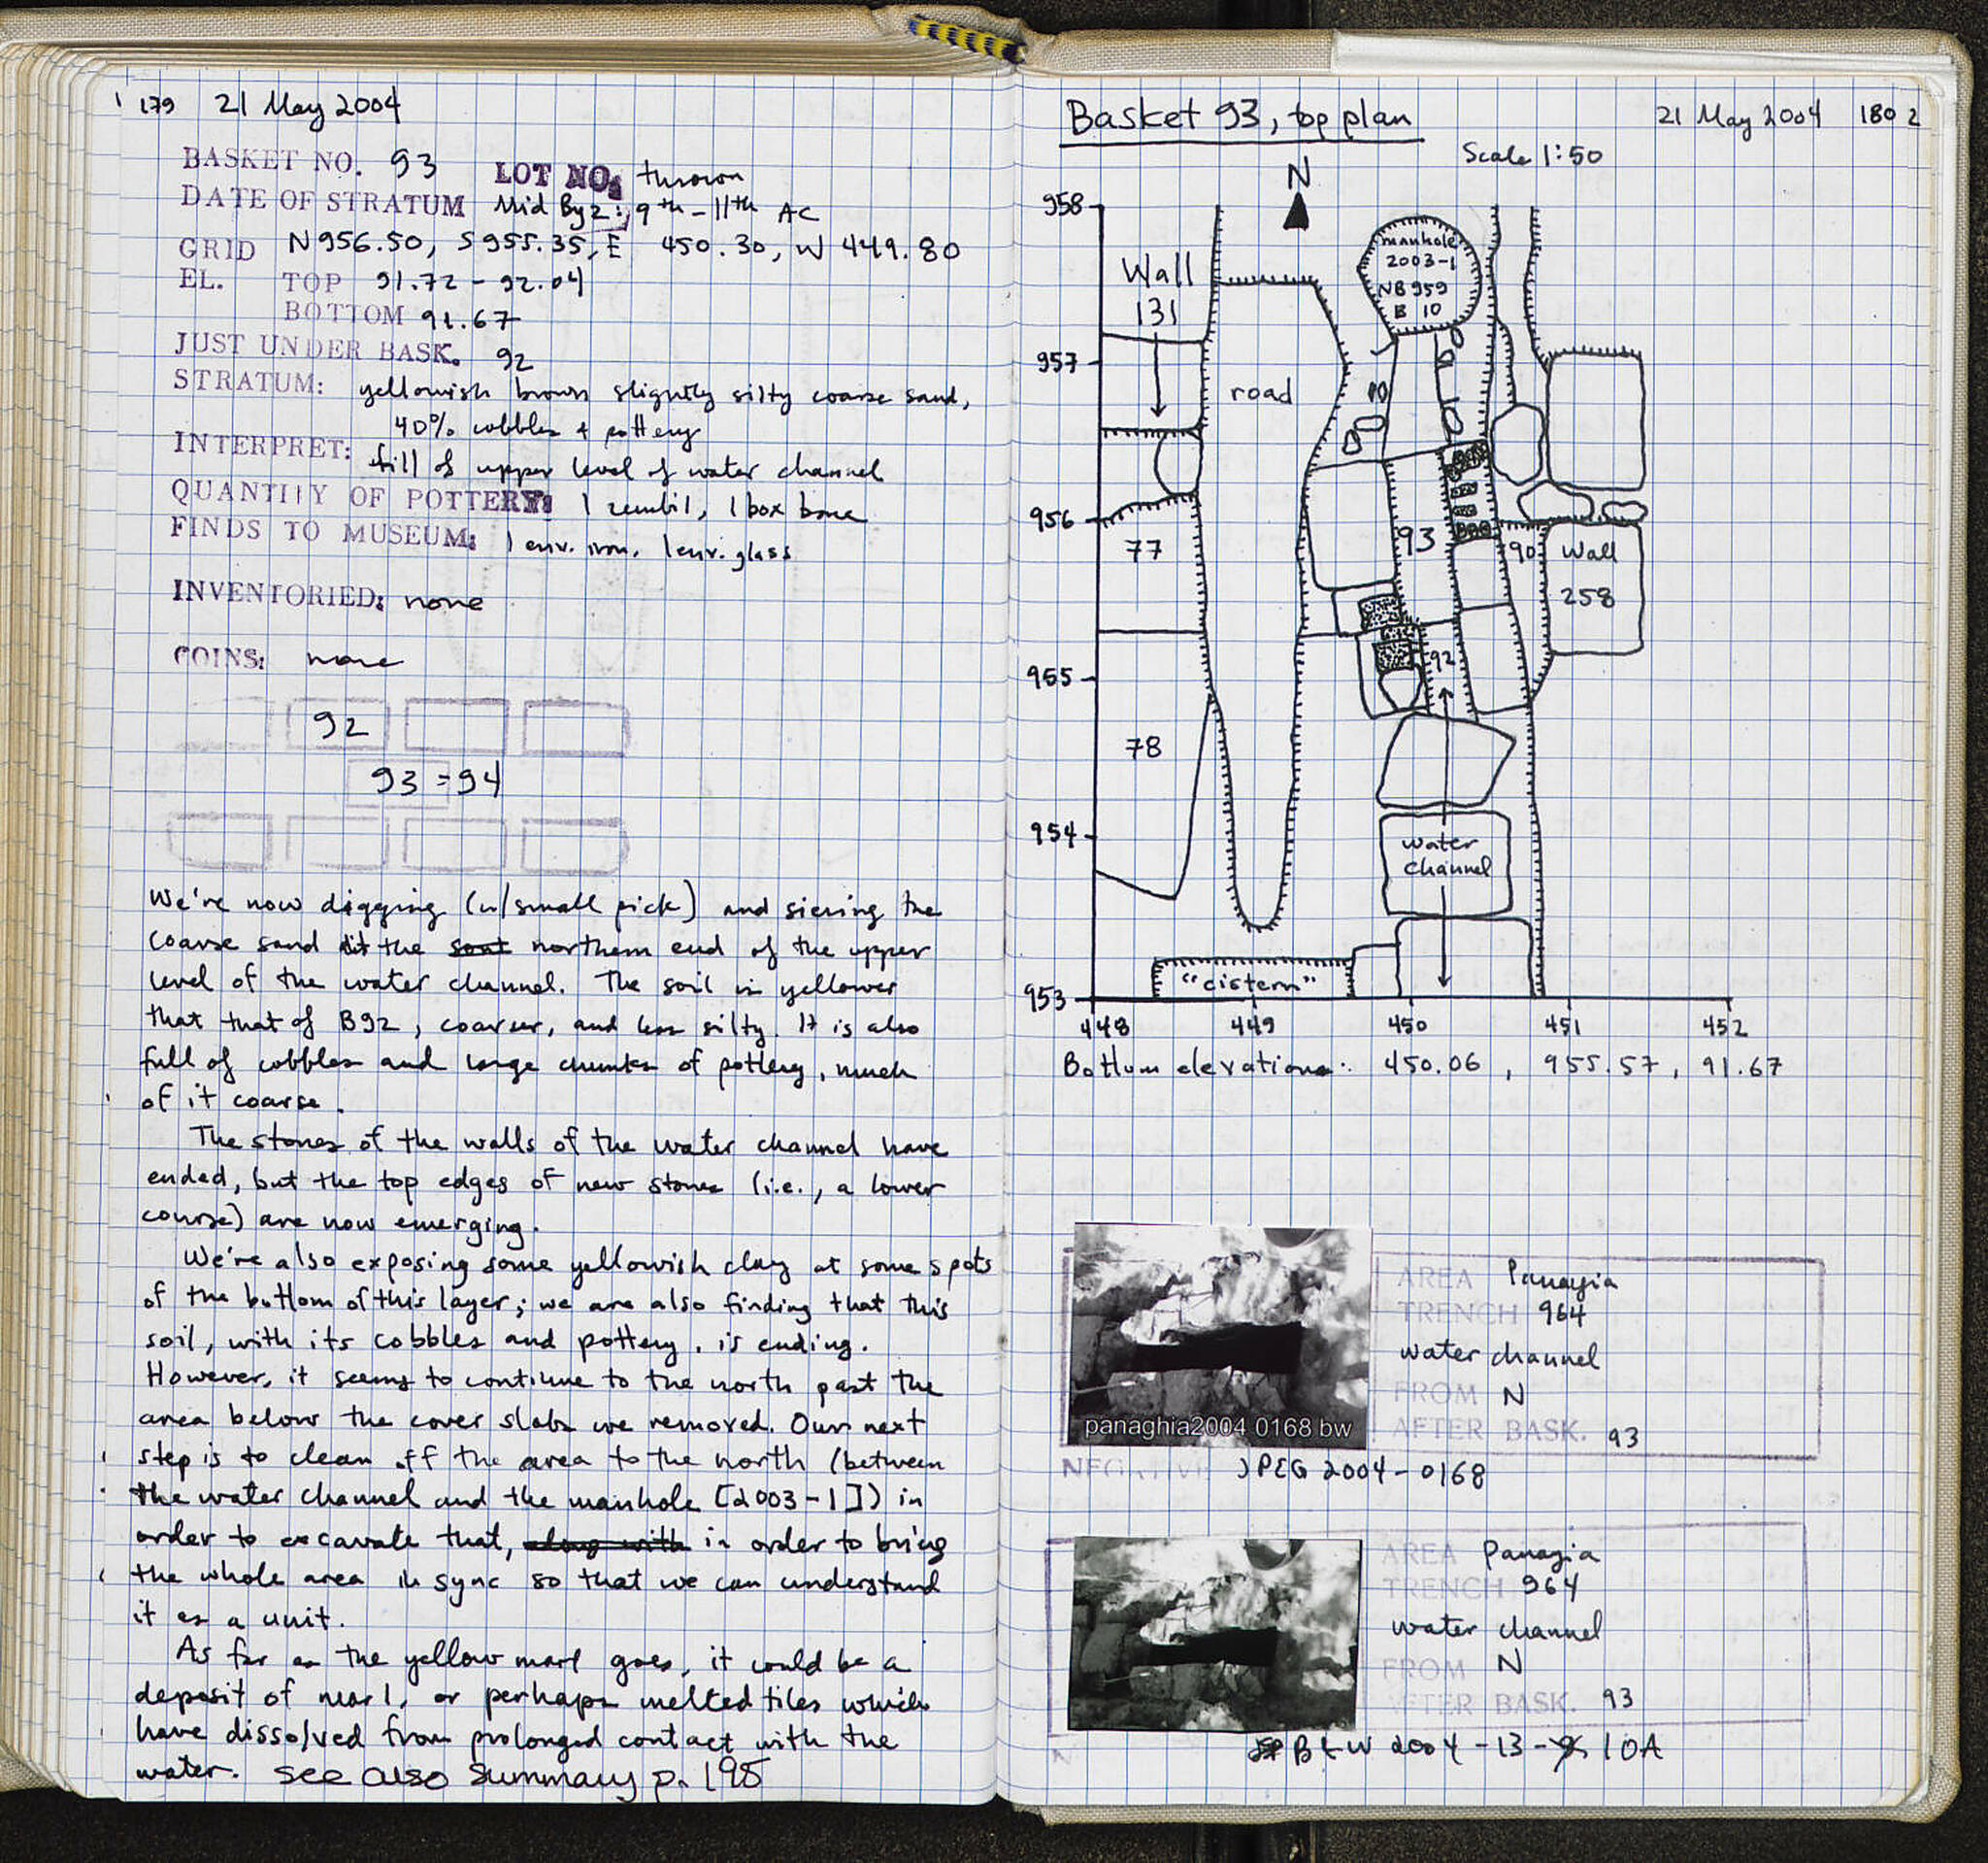 179 21 May 2004
BASKET NO. 93 LOT NO. thrown
DATE OF STRATUM Mid Byz: 9th-11th AC
GRID N956.50, S955.35, E 450.30, W 449.80
EL. TOP 91.72 - 92.04
BOTTOM 91.67
JUST UNDER BASK. 92
STRATUM: yellowish brown slightly silty coarse sand,
40% cobbles + pottery
INTERPRET: fill of upper level of water channel
QUANTITY OF POTTERY: 1 zembil, 1 box bone
FINDS TO MUSEUM: 1 env. iron, 1 env. glass
INVENTORIED: none
COINS: none
92
93 = 94
We're now digging (w/small pick) and sieving the
coarse sand at the sout northern end of the upper
level of the water channel. The soil is yellower
that that of B92, coarser, and less silty. It is also
full of cobbles and large chunks of pottery, much
of it coarse.
The stones of the walls of the water channel have
ended, but the top edges of new stones (i.e., a lower
course) are now emerging.
We're also exposing some yellowish clay at some spots
of the bottom of this layer; we are also finding that this
soil, with its cobbles and pottery, is ending.
However, it seems to continue to the north past the
area below the cover slabs we removed. Our next
step is to clean off the area to the north (between
the water channel and the manhole [2003-1]) in
order to excavate that, along with in order to bring
the whole area in sync so that we can understand
it as a unit.
As far as the yellow marl goes, it could be a
deposit of marl, or perhaps melted tiles which
have dissolved from prolonged contact with the
water. See also Summary p. 195
Basket 93, top plan 21 May 2004 180 2
Scale 1:50
N
958
manhole
2003-1
NB 959
B 10
Wall
131
957
road
956
77
93
90
Wall
258
955
92
78
954
water
channel
"cistern"
953
448 449 450 451 452
Bottom elevations: 450.06, 955.57, 91.67
AREA Panayia
TRENCH 964
water channel
FROM N
AFTER BASK. 93
panaghia2004 0168 bw
NEGATIVE JPEG 2004-0168
AREA Panayia
TRENCH 964
water channel
FROM N
AFTER BASK. 93
B+W 2004-13- 10A